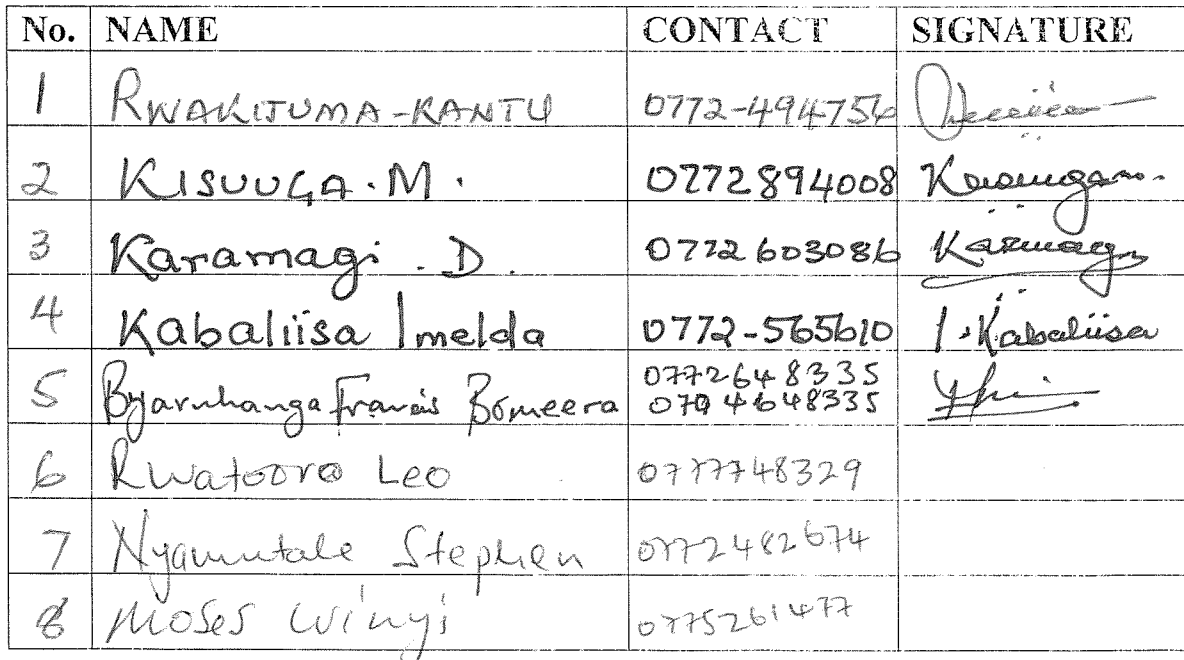 No. NAME CONTACT SIGNATURE
1 RWAKITUMA-KANTU 0772-494756
2 KISUUGA. M. 0772894008
3 Karamagi . D. 0772603086 Karamagi
4 Kabaliisa Imelda 0772-565610 I. Kabaliisa
5 Byaruhanga Francis Bomeera 0772648335
0704648335
6 Rwatooro Leo 0777748329
7 Nyamutale Stephen 0772482674
8 Moses Winyi 0775261477